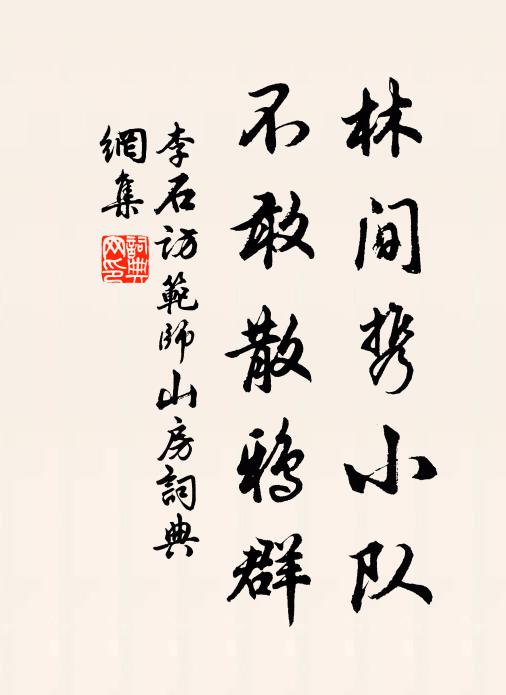 林间携小队
不敢散鴉群
李石访範師山房詞典
網集
詞典
网印